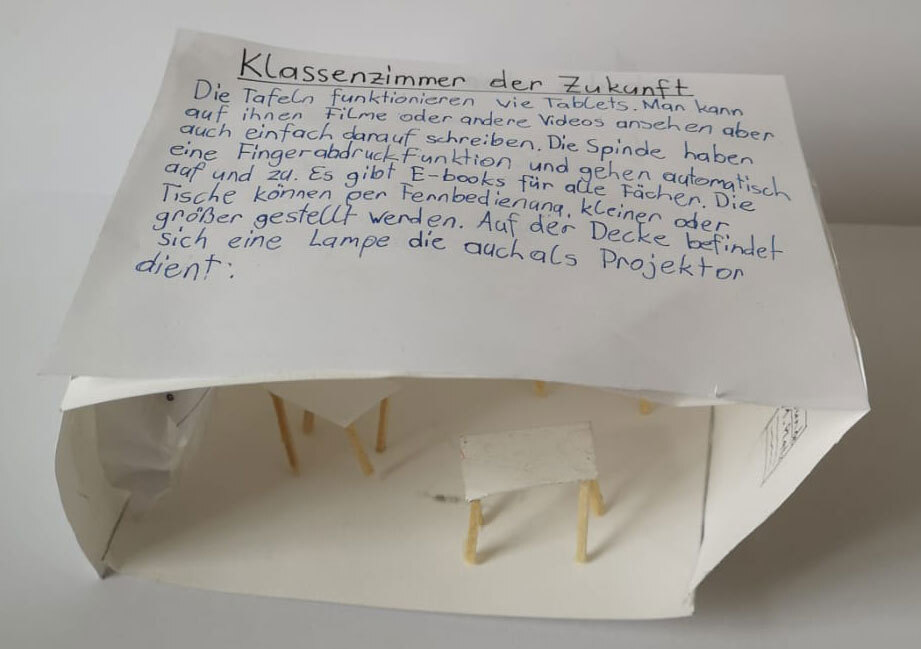 Klassenzimmer der Zukunft
Die Tafeln funktionieren wie Tablets. Man kann
auf ihnen Filme oder andere Videos ansehen aber
auch einfach darauf schreiben. Die Spinde haben
eine Fingerabdruckfunktion und gehen automatisch
auf und zu. Es gibt E-books für alle Fächer. Die
Tische können per Fernbedienung, kleiner oder
größer gestellt werden. Auf der Decke befindet
sich eine Lampe die auch als Projektor
dient.